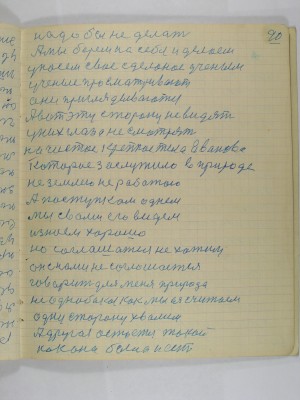 20
надо бы не делат
А мы берем на себя и делаем
умаем свое сделаное учением
учение просматривают
они приглядываются
А вот эту сторону не видят
у них глаз не смотрят
на чистое крепкое тела Иваново
которое заслужило в природе
не землею не работаю
А поступком одним
мы свами его видем
и знаем хорошо
но соглашатся не хотим
он снами не соглашается
говорит для меня природа
не однобокая как мы ая считаем
одну сторону хвалим
А другая остается такой
как она была и есть